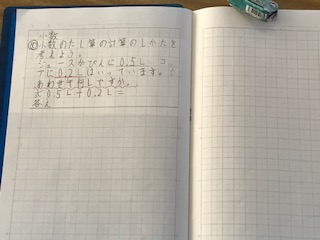 小数
小数のたし算の計算のしかたを
考えよう。
ジュースがびんに0.5L コ
プに0.2Lはいっています。
あわせて何Lですか。
式0.5L+0.2L=
答え